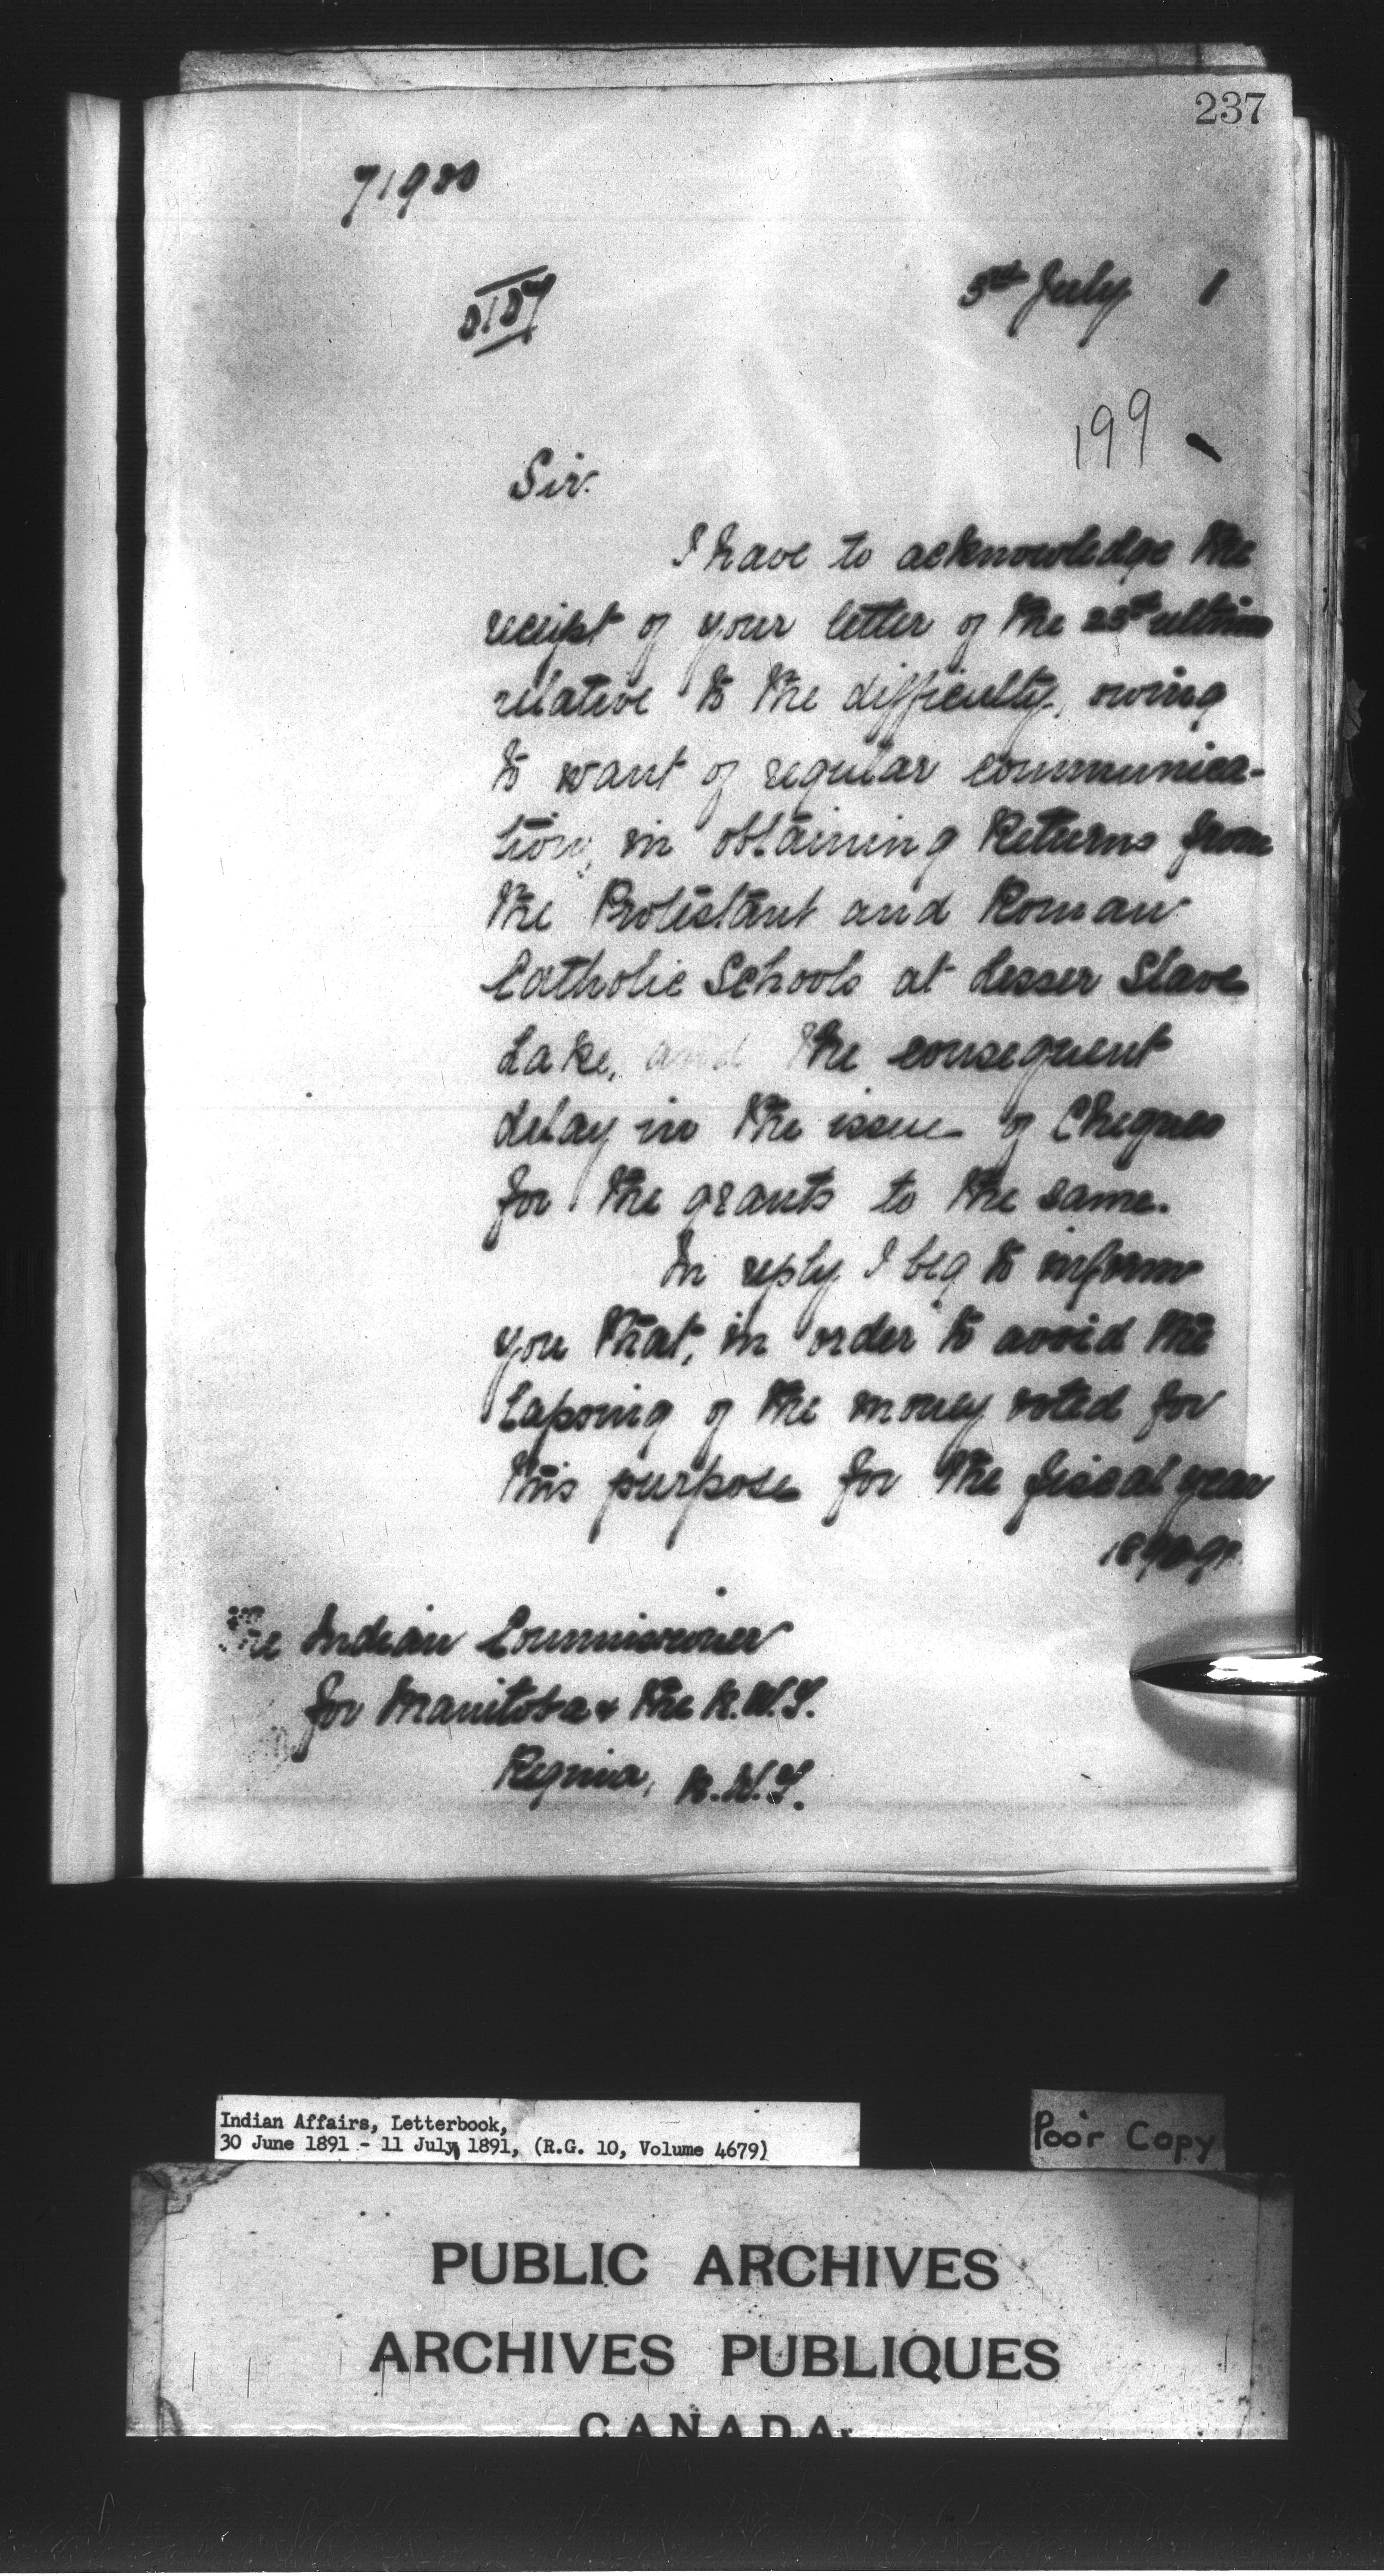 237
71900
3rd July 1
199
Sir.
I have to acknowledge the
receipt of your letter of the 23rd ultimo
relative to the difficulty, owing
to want of regular communica-
tion, in obtaining Returns from
the Protestant and Roman
Catholic Schools at Lesser Slave
Lake, and the consequent
delay in the issue of Cheques
for the grants to the same.
In reply I beg to inform
you that, in order to avoid the
lapsing of the money voted for
this purpose for the fiscal year
1890-91
The Indian Commissioner
for Manitoba & the N.W.T.
Regina, N.W.T.
Indian Affairs, Letterbook,
30 June 1891 - 11 July 1891, (R.G. 10, Volume 4679)
Poor Copy
PUBLIC ARCHIVES
ARCHIVES PUBLIQUES
CANADA